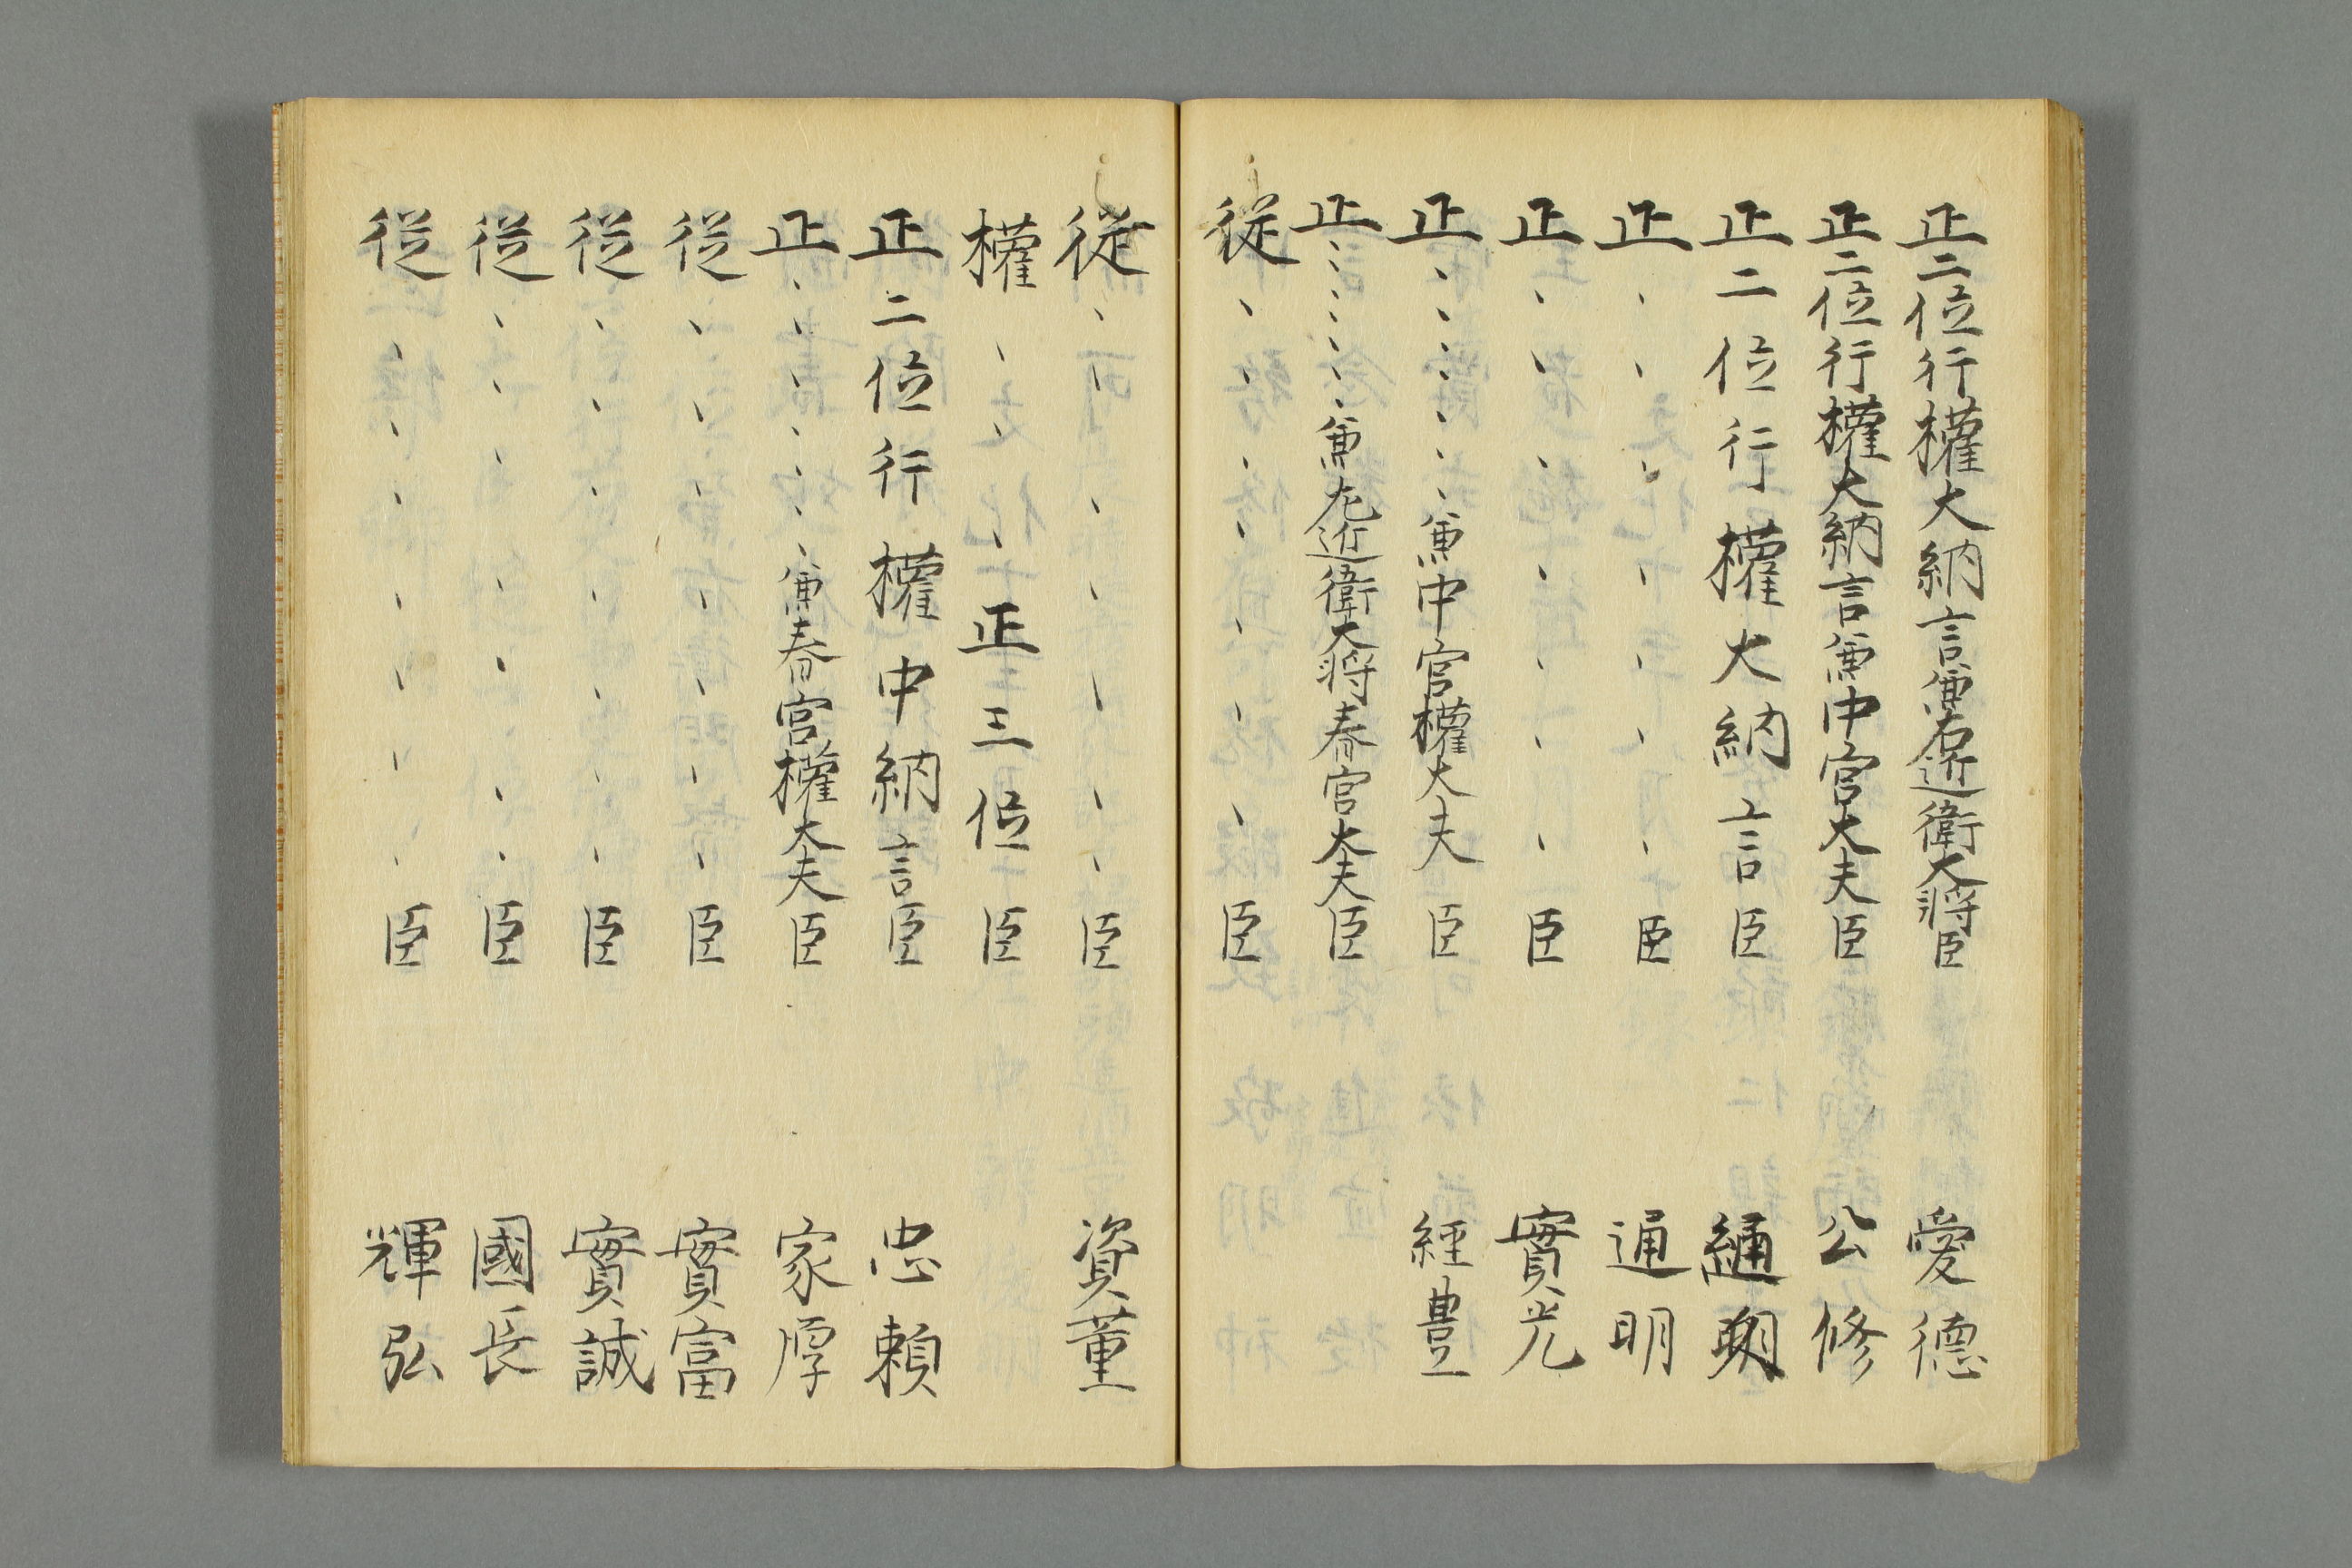 正二位行權大納言兼右近衛大将臣 愛德
正二位行權大納言兼中宮大夫臣 公修
正二位行權大納言臣
正、、、、、、、臣 通明
正、、、、、、、臣 實光
正、、、、、兼中宮權大夫臣 經豊
正、、、、、、、兼左近衛大将春宮大夫臣
従、、、、、、、臣
従、、、、、、、臣 資董
權、、、正三位臣
正二位行權中納言臣 忠頼
正、、、、、、、兼春宮權大夫臣 家厚
従、、、、、、、臣 實富
従、、、、、、、臣 實誠
従、、、、、、、臣 國長
従、、、、、、、臣 輝弘